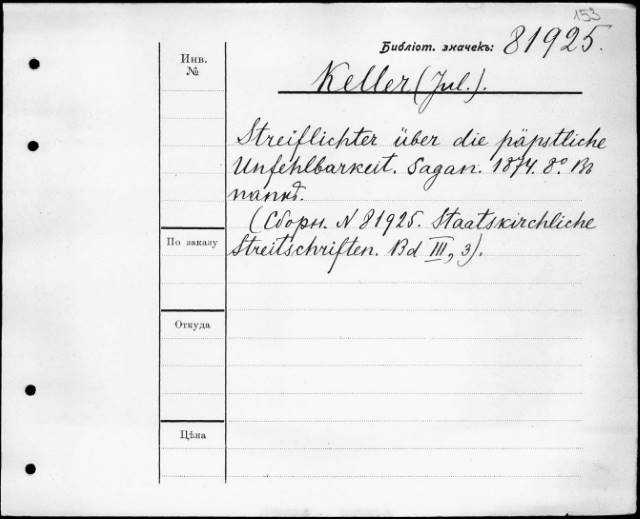 153
Библіот. значекъ: 81925.
Инв.
№
Keller (Jul.).
Streiflichter über die päpstliche
Unfehlbarkeit. Sagan. 1874. 8° Въ
папкѣ.
(Сборн. N 81925. Staatskirchliche
Streitschriften. Bd III, 3).
По заказу
Откуда
Цѣна